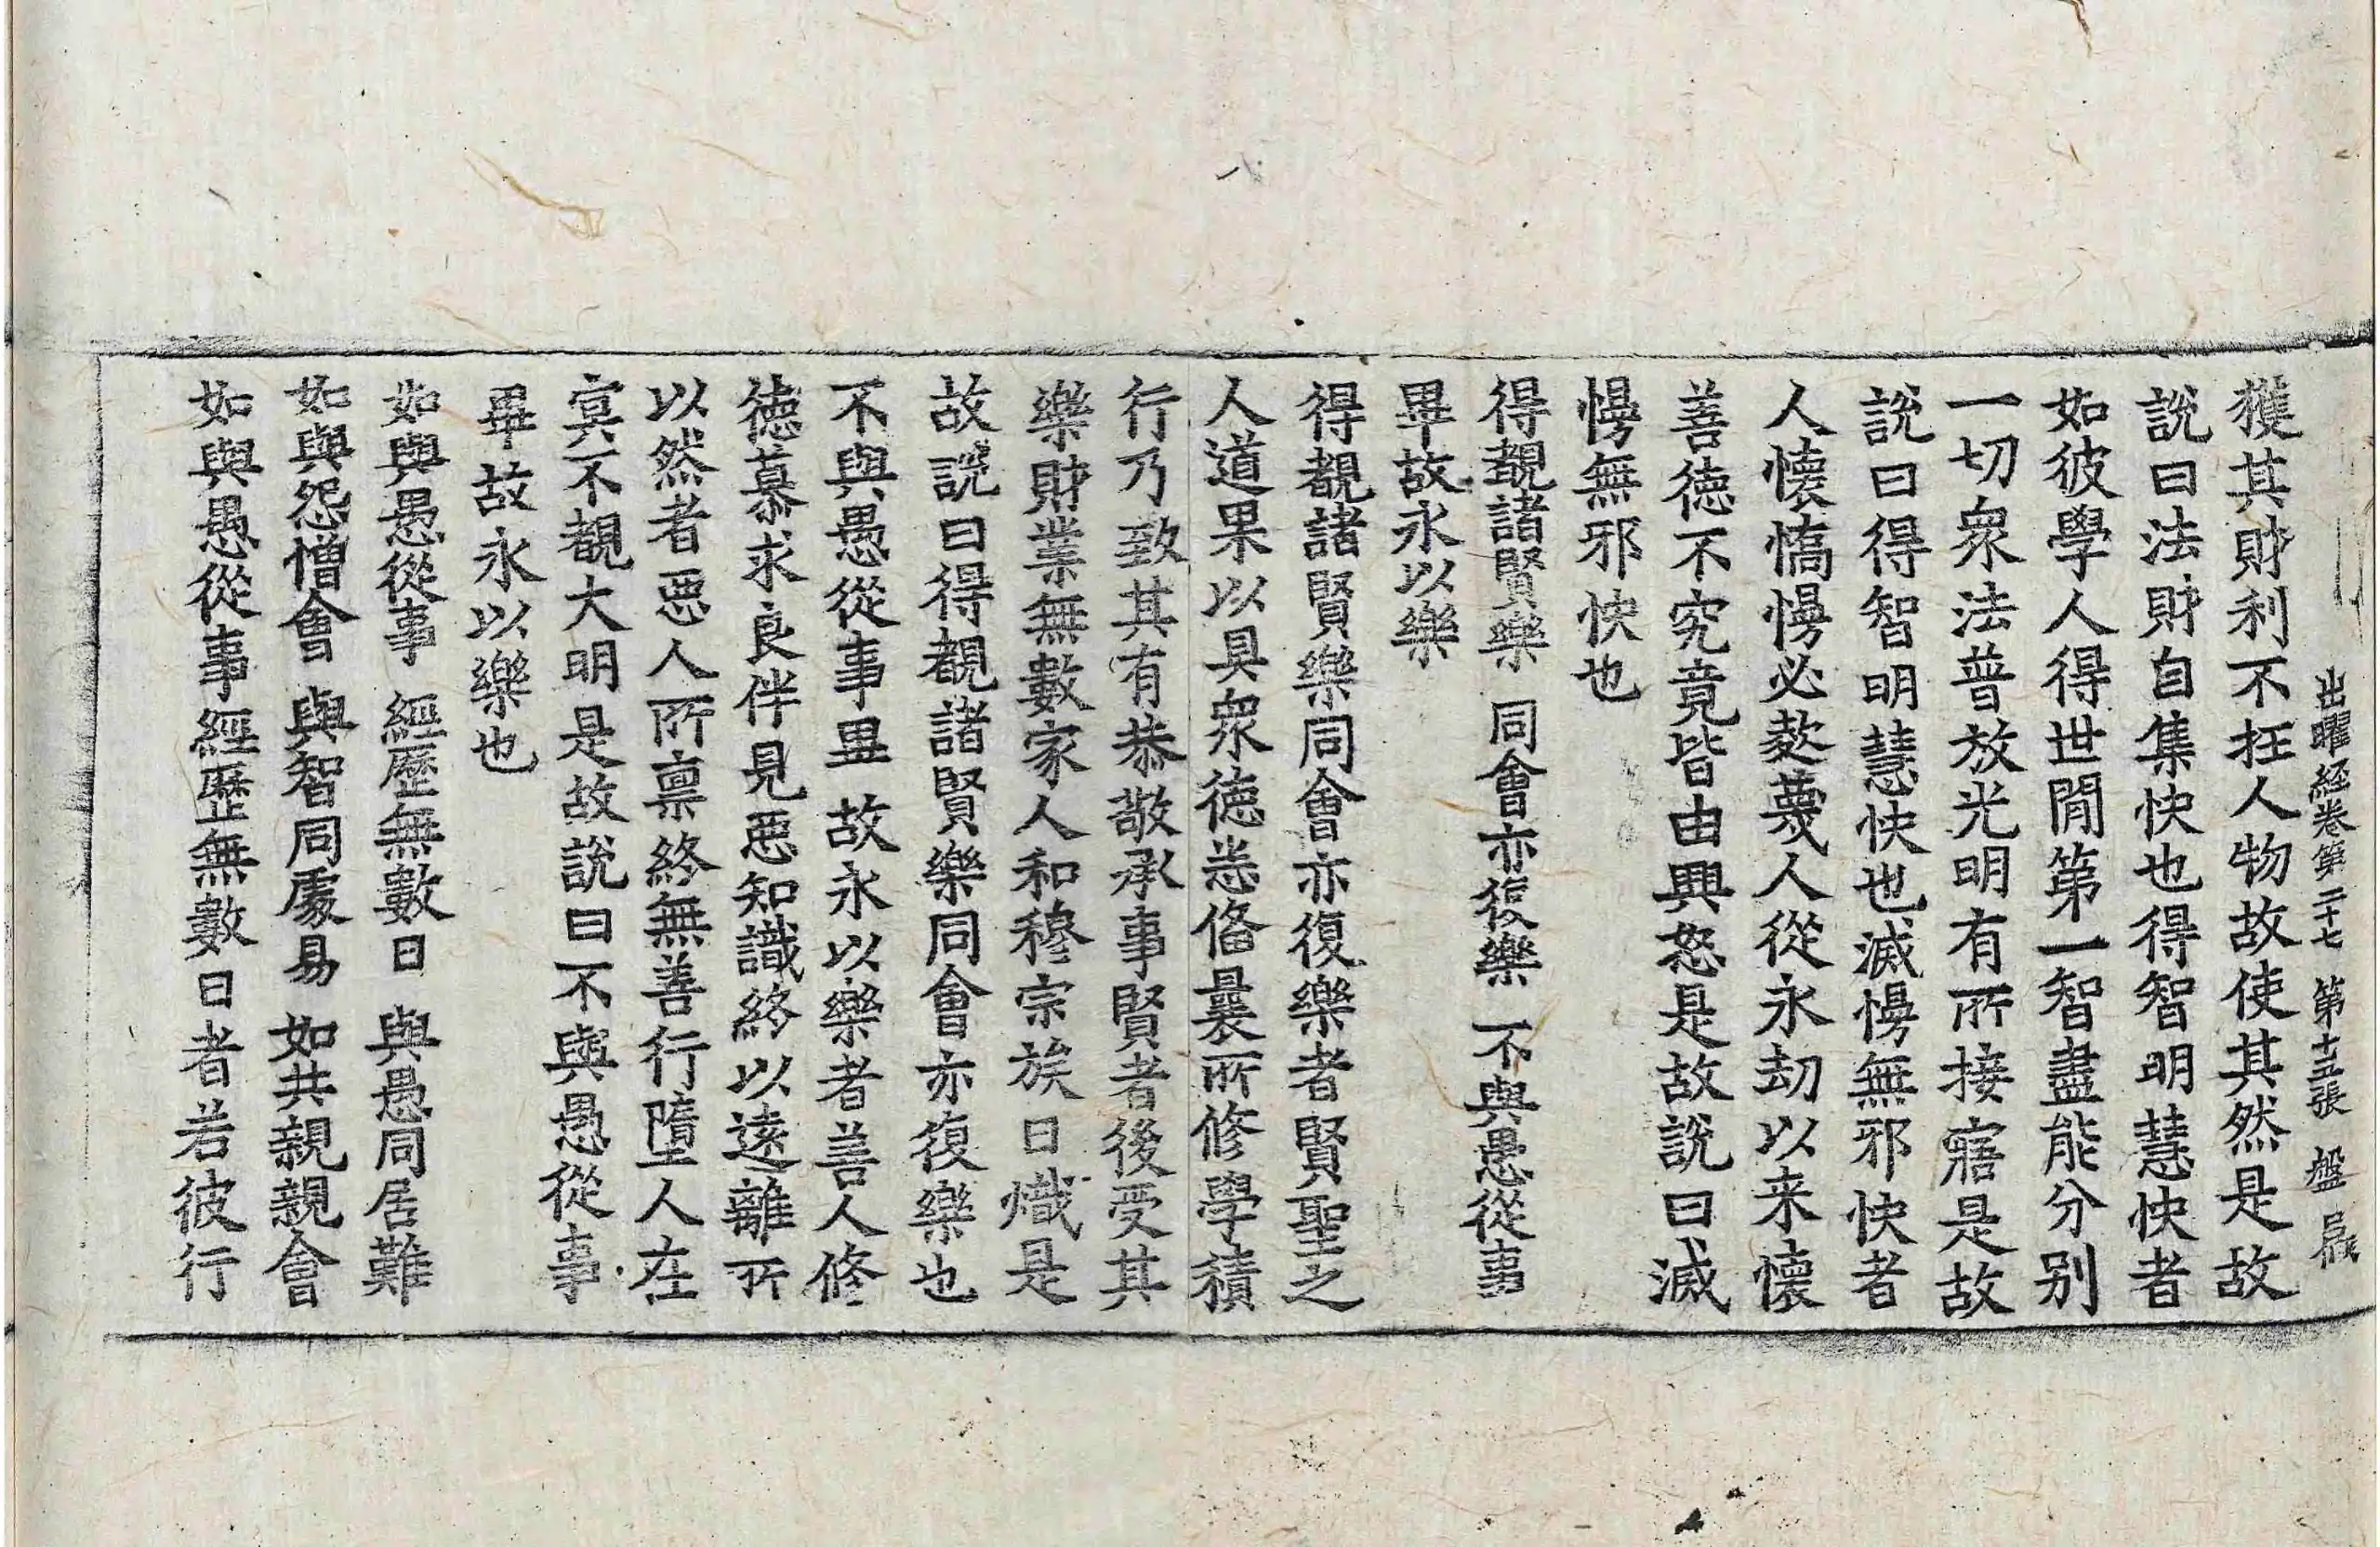 出曜経卷第二十七 第十五張 盤
獲其財利不抂人物故使其然是故
說曰法財自集快也得智明慧快者
如彼學人得世閒第一智盡能分别
一切衆法普放光明有所接寤是故
說曰得智明慧快也滅慢無邪快者
人懷憍慢必欺蔑人從永劫以来懷
善徳不究竟皆由興怒是故說曰滅
慢無邪快也
得覩諸賢樂 同會亦復樂 不與愚從事
畢故永以樂
得覩諸賢樂同會亦復樂者賢聖之
人道果以具衆徳悉俻曩所修學積
行乃致其有恭敬承事賢者後受其
樂財業無數家人和穆宗族日熾是
故說曰得覩諸賢樂同會亦復樂也
不與愚從事畢故永以樂者善人修
徳慕求良伴見惡知識終以遠離所
以然者惡人所禀終無善行墮人在
冥不覩大明是故說曰不與愚從事
畢故永以樂也
如與愚從事 經歷無數日 與愚同居難
如與怨憎會 與智同處易 如共親親會
如與愚從事經歷無數日者若彼行